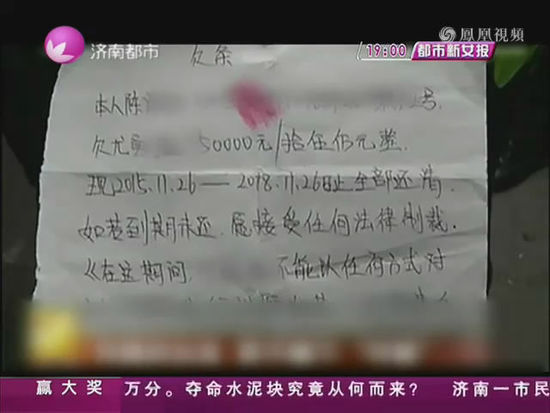 凤凰视频
济南都市
19:00 都市新女报
欠条
本人陈 号.
欠尤 50000元/拾伍佰元整.
现2015.11.26——2018.11.26日止全部还清.
如若到期未还.愿接受任何法律制裁.
《在这期间 不能以任何方式对
赢大奖 万分。夺命水泥块究竟从何而来? 济南一市民